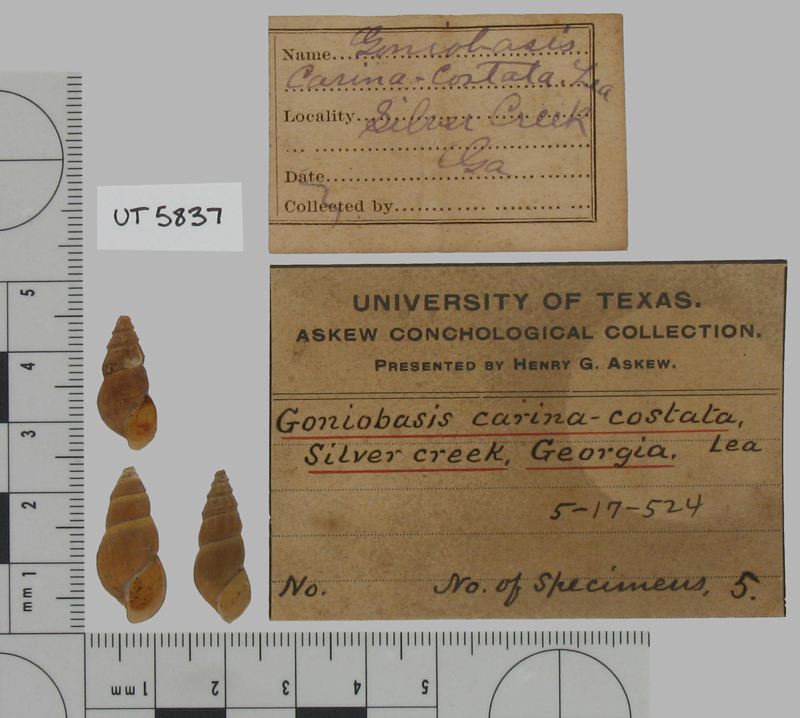 Name Goniobasis
Carina-costata. Lea
Locality Silver Creek
Ga
Date
Collected by
UT 5837
UNIVERSITY OF TEXAS.
ASKEW CONCHOLOGICAL COLLECTION.
PRESENTED BY HENRY G. ASKEW.
Goniobasis carina-costata,
Silver creek, Georgia. Lea
5-17-524
No. No. of Specimens, 5.
5
4
3
2
mm 1
mm 1 2 3 4 5